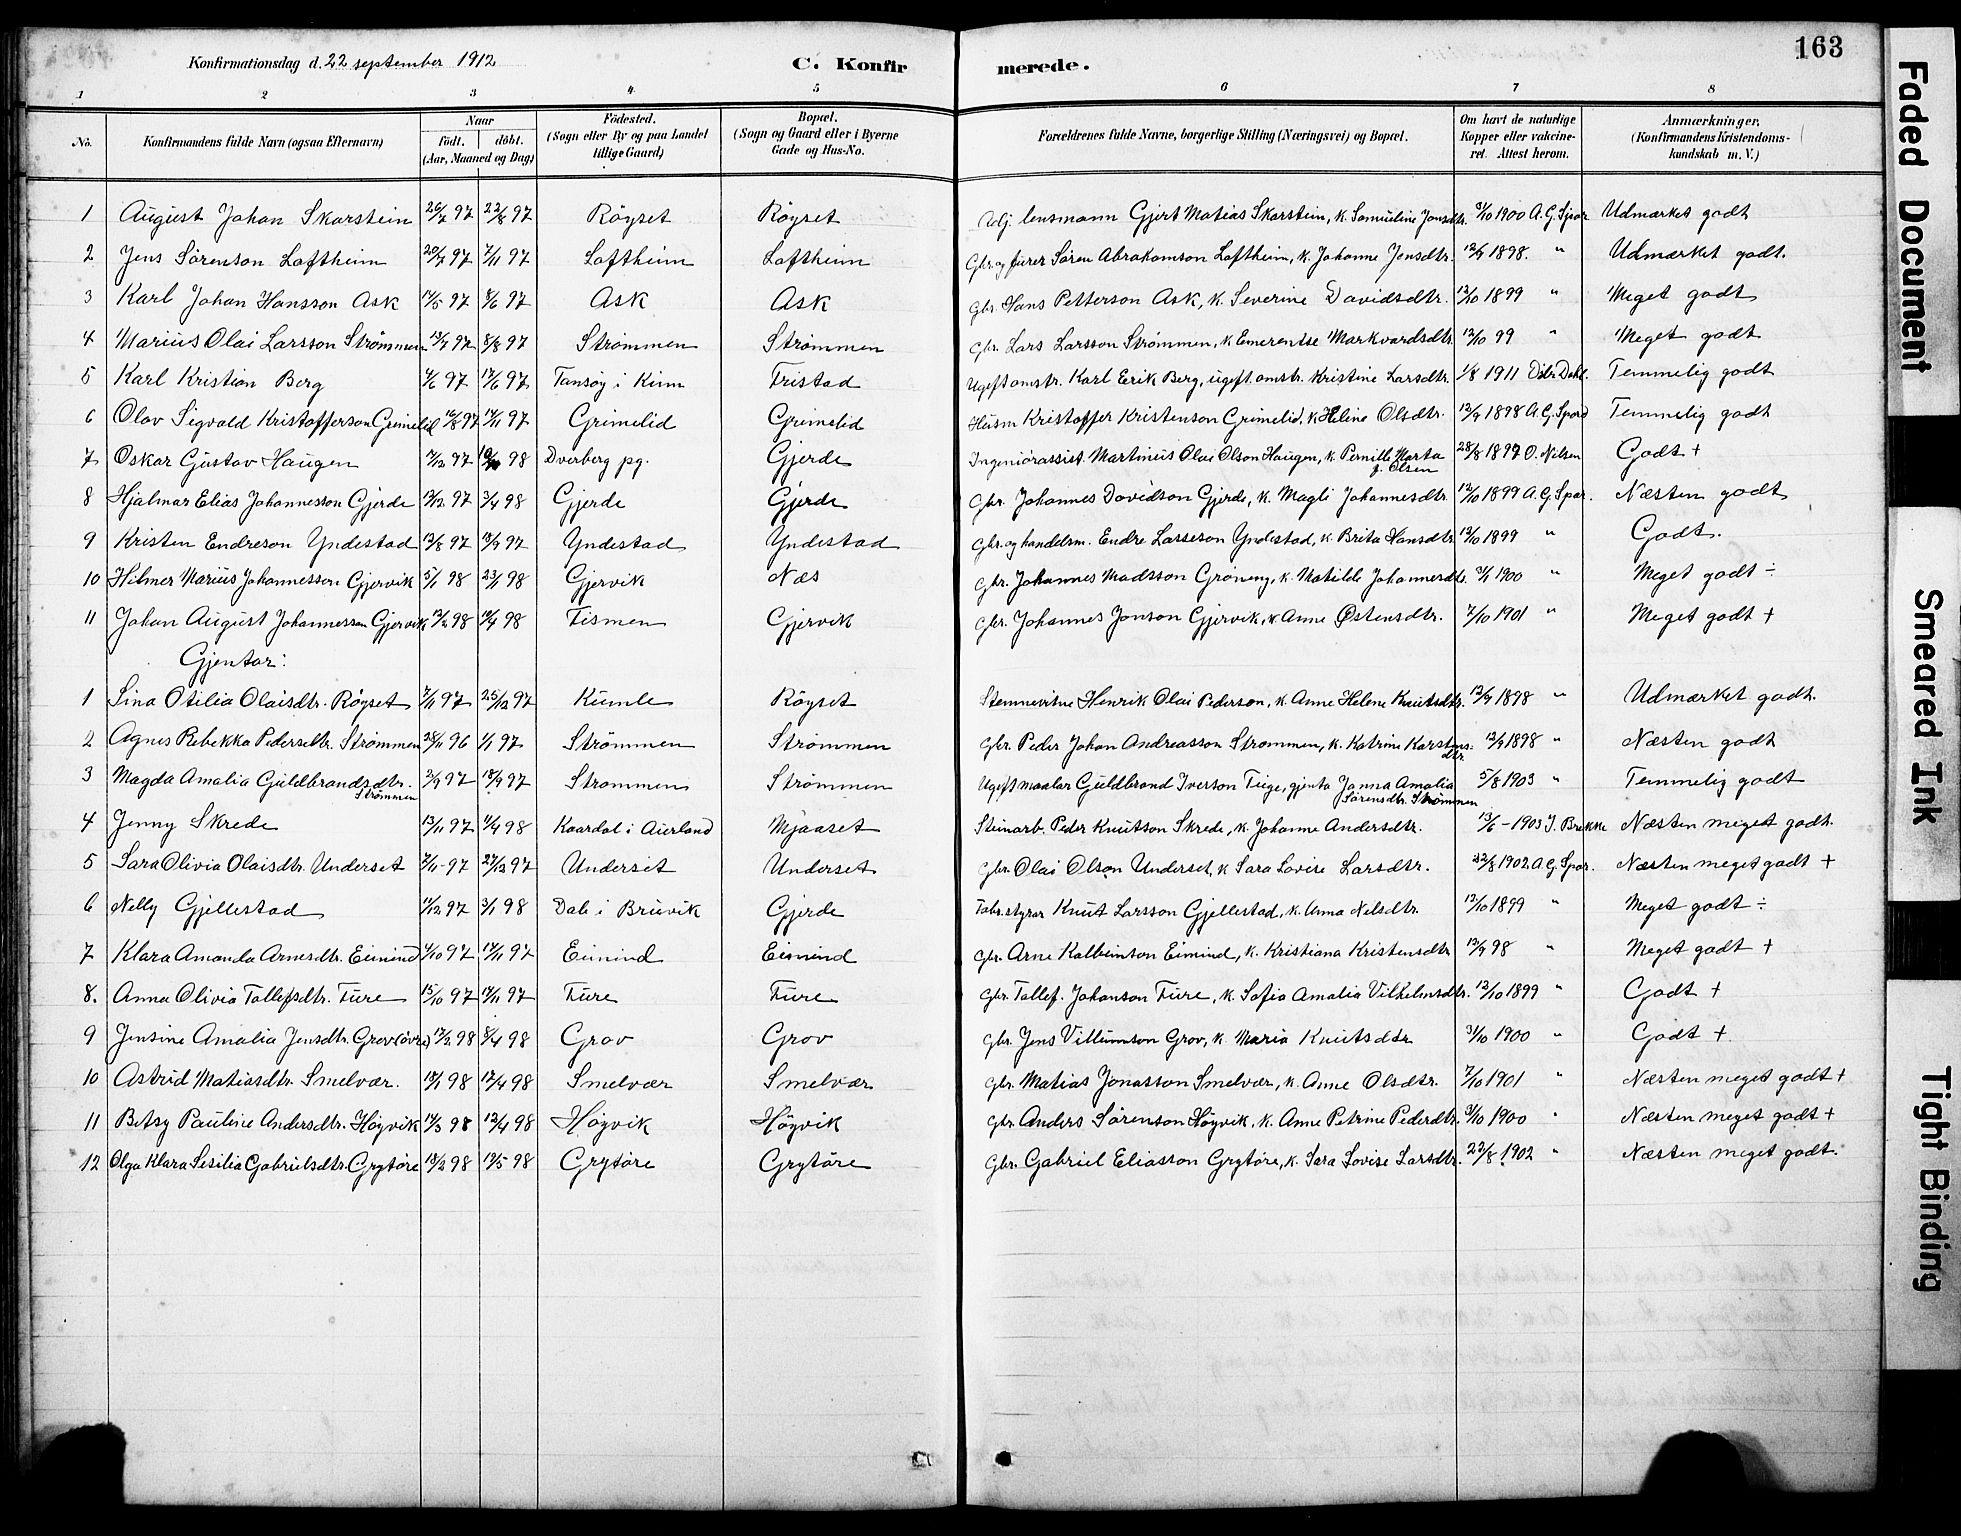 163
Konfirmationsdag d. 22 september 1912 C. Konfirmerede.
1 2 3 4 5 6 7 8
No. Konfirmandens fulde Navn (ogsaa Efternavn) Naar Födt. döbt. (Aar, Maaned og Dag) Födested. (Sogn eller By og paa Landet tillige Gaard) Bopæl. (Sogn og Gaard eller i Byerne Gade og Hus-No. Forældrenes fulde Navne, borgerlige Stilling (Næringsvei) og Bopæl. Om havt de naturlige Kopper eller vakcineret. Attest herom. Anmærkninger, (Konfirmandens Kristendomskundskab m. V.)
1 August Johan Skarstein 97 22/8 97 Röyset Röyset Adj. lensmann Gjert Matias Skarstein, k. Samueline Jonsdtr. 31/10 1900 A. G. Spor Udmærket godt
2 Jens Sörenson Loftheim 97 7/11 97 Loftheim Loftheim Gbr. og furer Sören Abrahamson Loftheim, k. Johanne Jensdtr. 12/9 1898. " Udmærket godt.
3 Karl Johan Hansson Ask 97 97 Ask Ask Gbr. Hans Petterson Ask, k. Severine Davidsdtr. 12/10 1899 " Meget godt
4 Marius Olai Larsson Strömmen 97 8/8 97 Strömmen Strömmen Gbr. Lars Larsson Strömmen, k. Emerentse Markvardsdtr. 12/10 99 " Meget godt
5 Karl Kristian Berg 97 97 Tansöy i Kinn Fristad Ugift omstr. Karl Eerik Berg, ugift omstr. Kristine Larsdtr. 1/8 1911 Dahl. Temmelig godt
6 Olav Sigvald Kristofferson Grimelid 97 97 Grimelid Grimelid Husm Kristoffer Kristenson Grimelid, k. Heline Olsdtr. 12/9 1898 A. G. Spord Temmelig godt
7 Oskar Gustav Haugen 97 98 Dverberg pg. Gjerde Ingeniörassist. Martinus Olai Olson Haugen, k. Pernille Marta f. Olsen 28/8 1897 O. Nilsen Godt +
8 Hjalmar Elias Johannesson Gjerde 97 3/4 98 Gjerde Gjerde Gbr. Johannes Davidson Gjerde, k. Magli Johannesdtr. 12/10 1899 A. G. Spor. Næsten godt
9 Kristen Endreson Yndestad 97 97 Yndestad Yndestad Gbr. og handelsm. Endre Lasseson Yndestad, k. Brita Hansdtr. 12/10 1899 " Godt.
10 Hilmer Marius Johannesson Gjervik 5/1 98 23/1 98 Gjervik Næs Gbr. Johannes Madsson Gröneng, k. Matilde Johannesdtr. 1900 " Meget godt ÷
11 Johan August Johannesson Gjervik 98 98 Tismen Gjervik Gbr. Johannes Jonson Gjervik, k. Anne Østensdtr. 7/10 1901 " Meget godt +
Gjentar:
1 Sina Otilia Olaisdtr. Röyset 7/11 97 25/12 97 Kumle Röyset Stemnevitne Henrik Olai Pederson, k. Anne Helene Knutsdtr. 12/9 1898 " Udmærket godt.
2 Agnes Rebekka Pedersdtr. Strömmen 28/11 96 1/1 97 Strömmen Strömmen Gbr. Peder Johan Andreasson Strommen, k. Katrine Karstensdtr. 12/9 1898 " Næsten godt
3 Magda Amalia Guldbrandsdtr. Strömmen 2/9 97 18/9 97 Strommen Strömmen Ugift maalar Guldbrand Iverson Tuge, gjenta Janna Amalia Sörensdtr. Strömmen 5/8 1903 " Temmelig godt
4 Jenny Skrede 13/11 97 98 Kaardal i Aurland Mjaaset Steinarb. Peder Knutson Skrede, k. Johanne Andersdtr. 13/6 - 1903 J. Brekke Næsten meget godt.
5 Sara Olivia Olaisdtr. Underset 7/11 97 27/12 97 Underset Underset Gbr. Olai Olson Underset, k. Sara Lovise Larsdtr. 22/8 1902 A. G. Spor. Næsten meget godt +
6 Nelly Gjellestad 97 3/1 98 Dale i Bruvik Gjerde Fabr. styrar Knut Larsson Gjellestad, k. Anna Nilsdtr. 12/10 1899 " Meget godt ÷
7 Klara Amanda Arnesdtr. Eimind 97 97 Eimind Eimind Gbr. Arne Kolbeinson Eimind, k. Kristiana Kristensdtr 12/9 98 " Meget godt +
8. Anna Olivia Tollefsdtr. Fure 15/10 97 97 Fure Fure Gbr. Tollef. Johanson Fure, k. Sofia Amalia Vilhelmsdtr. 12/10 1899 " Godt +
9 Jensine Amalia Jensdtr. Grov (övre) 98 8/4 98 Grov Grov Gbr. Jens Villumson Grov, k. Maria Knutsdtr 31/10 1900 " Godt +
10 Astrid Matiasdtr. Smelvær. 98 17/4 98 Smelvær Smelvær Gbr. Matias Jonasson Smelvær, k. Anne Olsdtr. 7/10 1901 " Næsten meget godt +
11 Betsy Pauline Andersdtr. Högvik 98 12/4 98 Högvik Högvik Gbr. Anders Sörenson Högvik, k. Anne Petrine Pedersdtr. 31/10 1900 " Næsten meget godt +
12 Olga Klara Sesilia Gabrielsdtr. Grytöre 98 98 Grytöre Grytöre Gbr. Gabriel Eliasson Grytöre, k. Sara Lovise Larsdtr. 22/8 1902 " Næsten meget godt.
Faded Document
Smeared Ink
Tight Binding